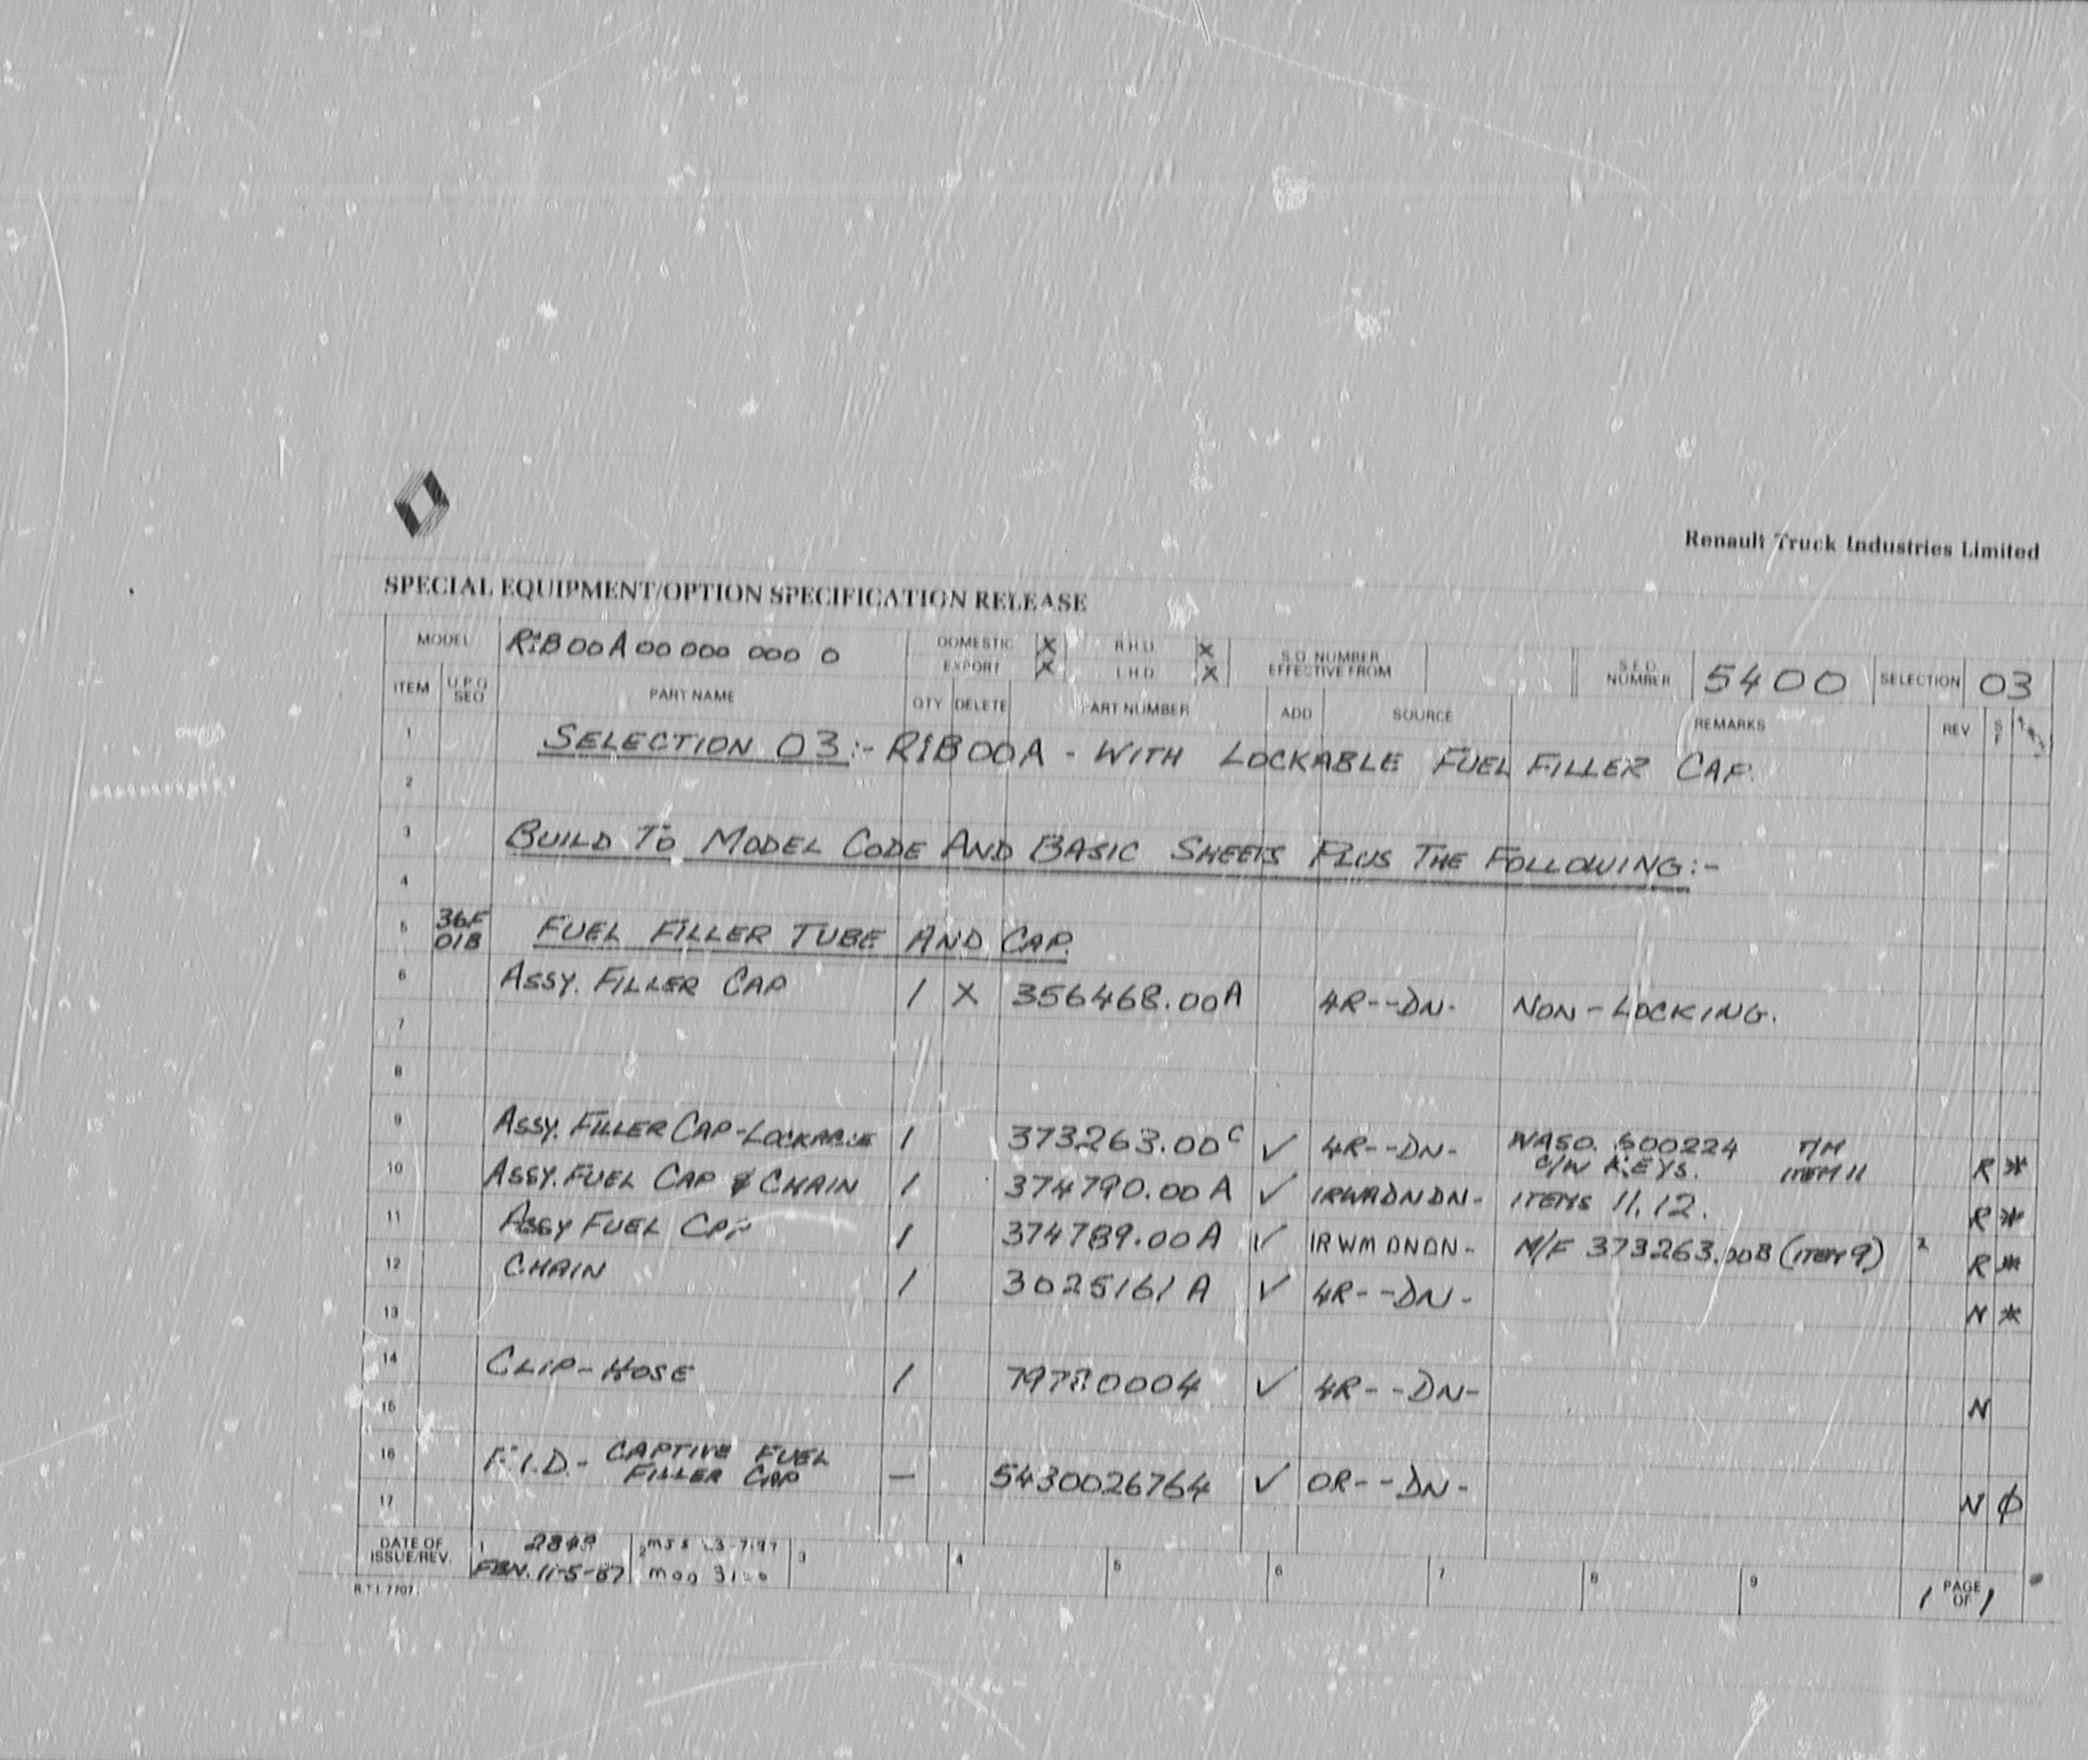 Renault Truck Industries Limited
SPECIAL EQUIPMENT/OPTION SPECIFICATION RELEASE
MODEL R1B00A00 000 000 0 DOMESTIC X R.H.D. X S.O. NUMBER EFFECTIVE FROM S.E.O. NUMBER 5400 SELECTION 03
EXPORT X L.H.D. X
ITEM U.P.G SEQ PART NAME QTY DELETE PART NUMBER ADD SOURCE REMARKS REV S F
1 SELECTION 03:- R1B00A - WITH LOCKABLE FUEL FILLER CAP.
2
3 BUILD TO MODEL CODE AND BASIC SHEETS PLUS THE FOLLOWING:-
4
5 36F 01B FUEL FILLER TUBE AND CAP.
6 ASSY. FILLER CAP 1 X 356468.00A 4R--DN- NON-LOCKING.
7
8
9 ASSY. FILLER CAP-LOCKABLE 1 373263.00C ✓ 4R--DN- WASO. 500224 F/M
C/W KEYS. ITEM 11 R *
10 ASSY. FUEL CAP & CHAIN 1 374790.00A ✓ 1RWADNDN- ITEMS 11, 12. R *
11 ASSY FUEL CAP 1 374789.00A ✓ 1RWMDNDN- M/F 373263.00B (ITEM 9) 2 R *
12 CHAIN 1 3025161A ✓ 4R--DN- N *
13
14 CLIP-HOSE 1 79780004 ✓ 4R--DN- N
15
16 F.I.D.- CAPTIVE FUEL
FILLER CAP — 5430026764 ✓ OR--DN- N Ø
17
DATE OF ISSUE/REV. 1 FBN. 11-5-87 2 3 4 5 6 7 8 9 1 PAGE OF 1
R.T.I. 7707.